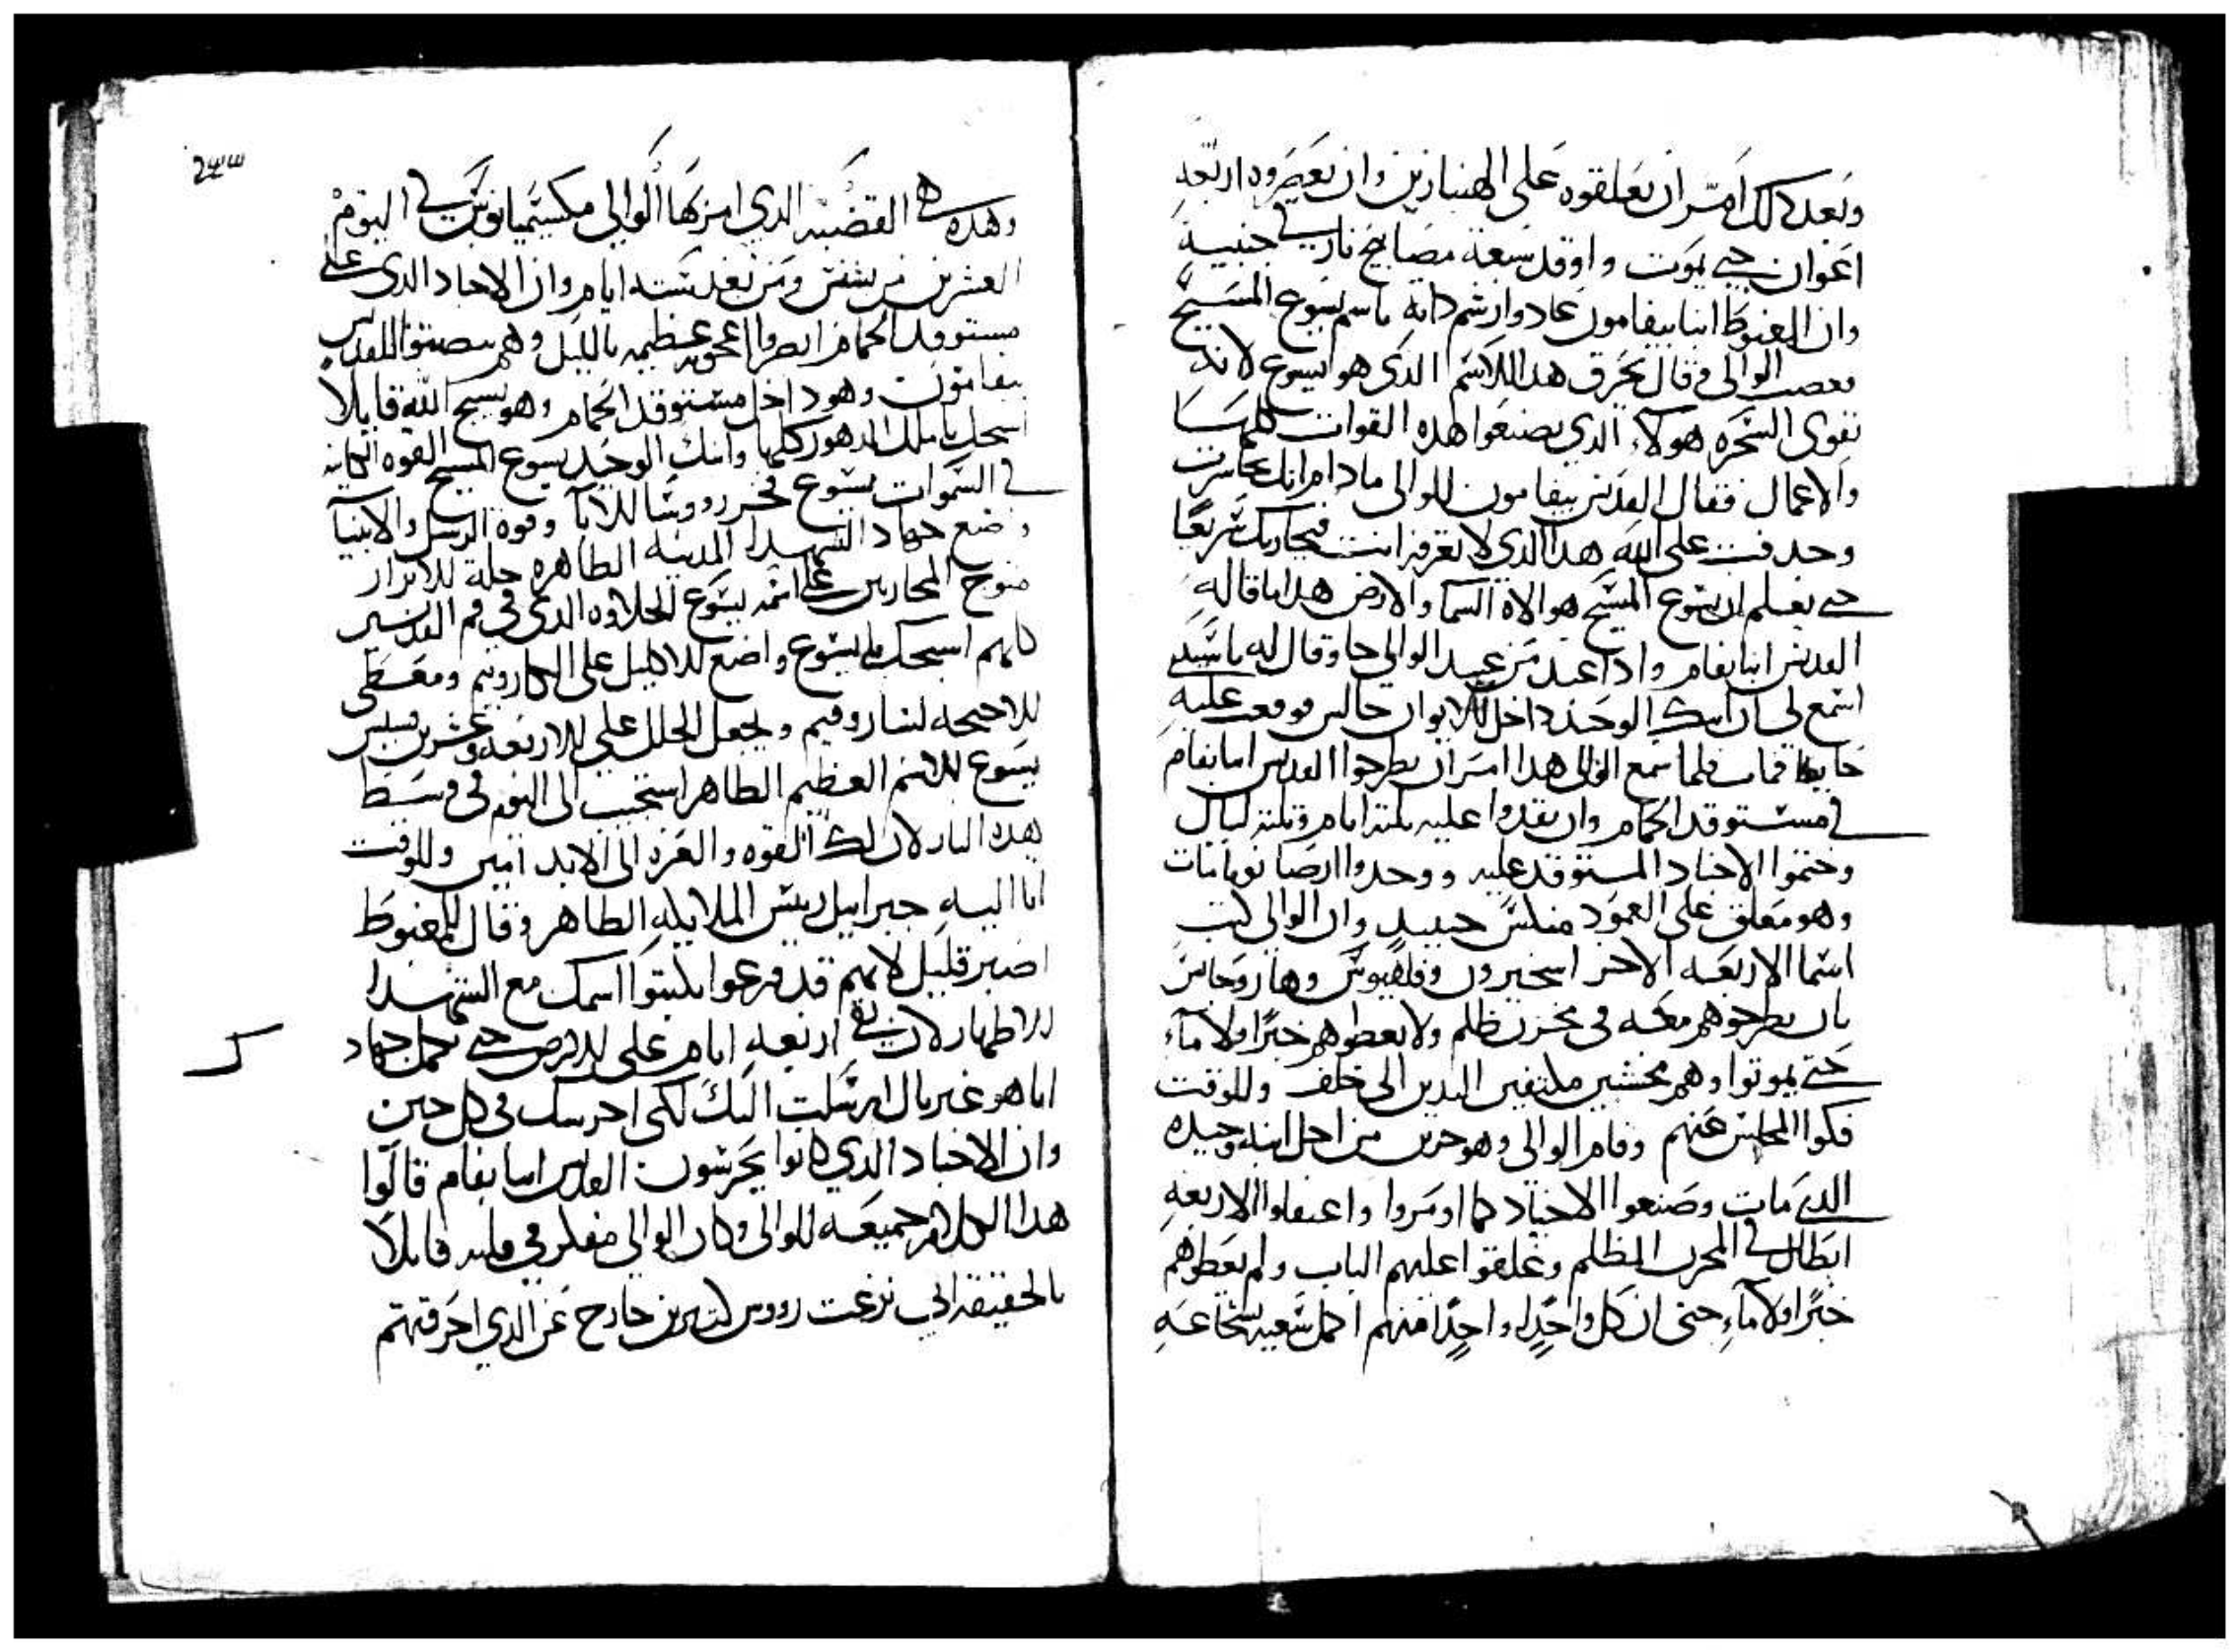 وبعد دلك امر ان يعلقوه على الهنبازين وان يعصروه اربعه
اعوان حتى يموت واوقد سبعة مصابيح نار في جنبيه
وان المغبوط انبا بيفامون عاد وارشم داته باسم يسوع المسيح
فغضب الوالي وقال يحرق هدا الاسم الذي هو ايسوع لانه
يقوى السحره هولاء الدي يصنعوا هده القوات كلها
والاعمال فقال القديس بيفامون للوالي مادام انك تجاسرت
وجدفت على الله هدا الذي لا تعرفه انت فيجاريك سريعا
حتى تعلم ان يسوع المسيح هو الاه السما والارض هدا ما قاله
القديس انبا بفام وادا عبد من عبيد الوالي جا وقال له يا سيدي
اسمع لي ان ابنك الوحيد داخل الايوان جالس فوقعت عليه
حايط فمات فلما سمع الوالي هدا امر ان يطرحوا القديس انبا بفام
في مستوقد الحمام وان يقدوا عليه ثلثه ايام وثلثه ليال
وختموا الاجناد المستوقد عليه ووجدوا ارضا نوبا مات
وهو معلق على العمود منكس حينيد وان الوالي كتب
اسما الاربعه الاخر اسخيرون وفلفيوس وهاروجاس
بان يطرحوهم معه في مخزن مظلم ولا يعطوهم خبزا ولا ماء
حتى يموتوا وهم مخشبين ملتفين اليدين الى خلف وللوقت
فكوا المجلس عنهم وقام الوالي وهو حزين من اجل ابنه وحيده
الدي مات وصنعوا الاجناد كما اومروا واعتقلوا الاربعه
ابطال في المخزن المظلم وغلقوا عليهم الباب ولم يعطوهم
خبزا ولا ماء حتى ان كل واحدا واحدا منهم اكمل سعيه بشجاعه
٢٣٣
وهده هي القضيه الدي امر بها الوالي مكسيميانوس في اليوم
العشرين من بشنس ومن بعد سته ايام وان الاجناد الدي على
مستوقد الحمام ابصروا اعجوبه عظيمه بالليل وهم ينصتوا للقديس
بيفامون وهو داخل مستوقد الحمام وهو يسبح الله قايلا
اسبحك يا ملك الدهور كلها وابنك الوحيد يسوع المسيح القوه الكاينه
في السموات يسوع فخر رووسا الابا وقوة الرسل والانبيا
وضع جهاد الشهدا المدينه الطاهره حلة للابرار
متوج المحاربين على اسمه يسوع الحلاوه الدي في فم القديسين
كلهم اسبحك يا يسوع واضع الاكليل على الكاروبيم ومعطى
الاجنحه لساروفيم وتجعل الحلل على الاربعه وعشرين قسيس
يسوع الاسم العظيم الطاهر استجيب الى اليوم في وسط
هده النار لان لك القوه والعزه الى الابد امين وللوقت
اتا اليه جبراييل رييس الملايكه الطاهر وقال للمغبوط
اصبر قليل لانهم قد فرغوا يكتبوا اسمك مع الشهدا
الاطهار لان بقى اربعه ايام على الارض حتى تكمل جهاد
انا هو غبريال ارسلت اليك لكي احرسك في كل حين
وان الاجناد الدي كانوا يحرسون القديس انبا بفام قالوا
هدا الكلام جميعه للوالي وكان الوالي مفكر في قلبه قايلا
بالحقيقه اني نزعت رووس كتيرين خارج عن الدي احرقتهم